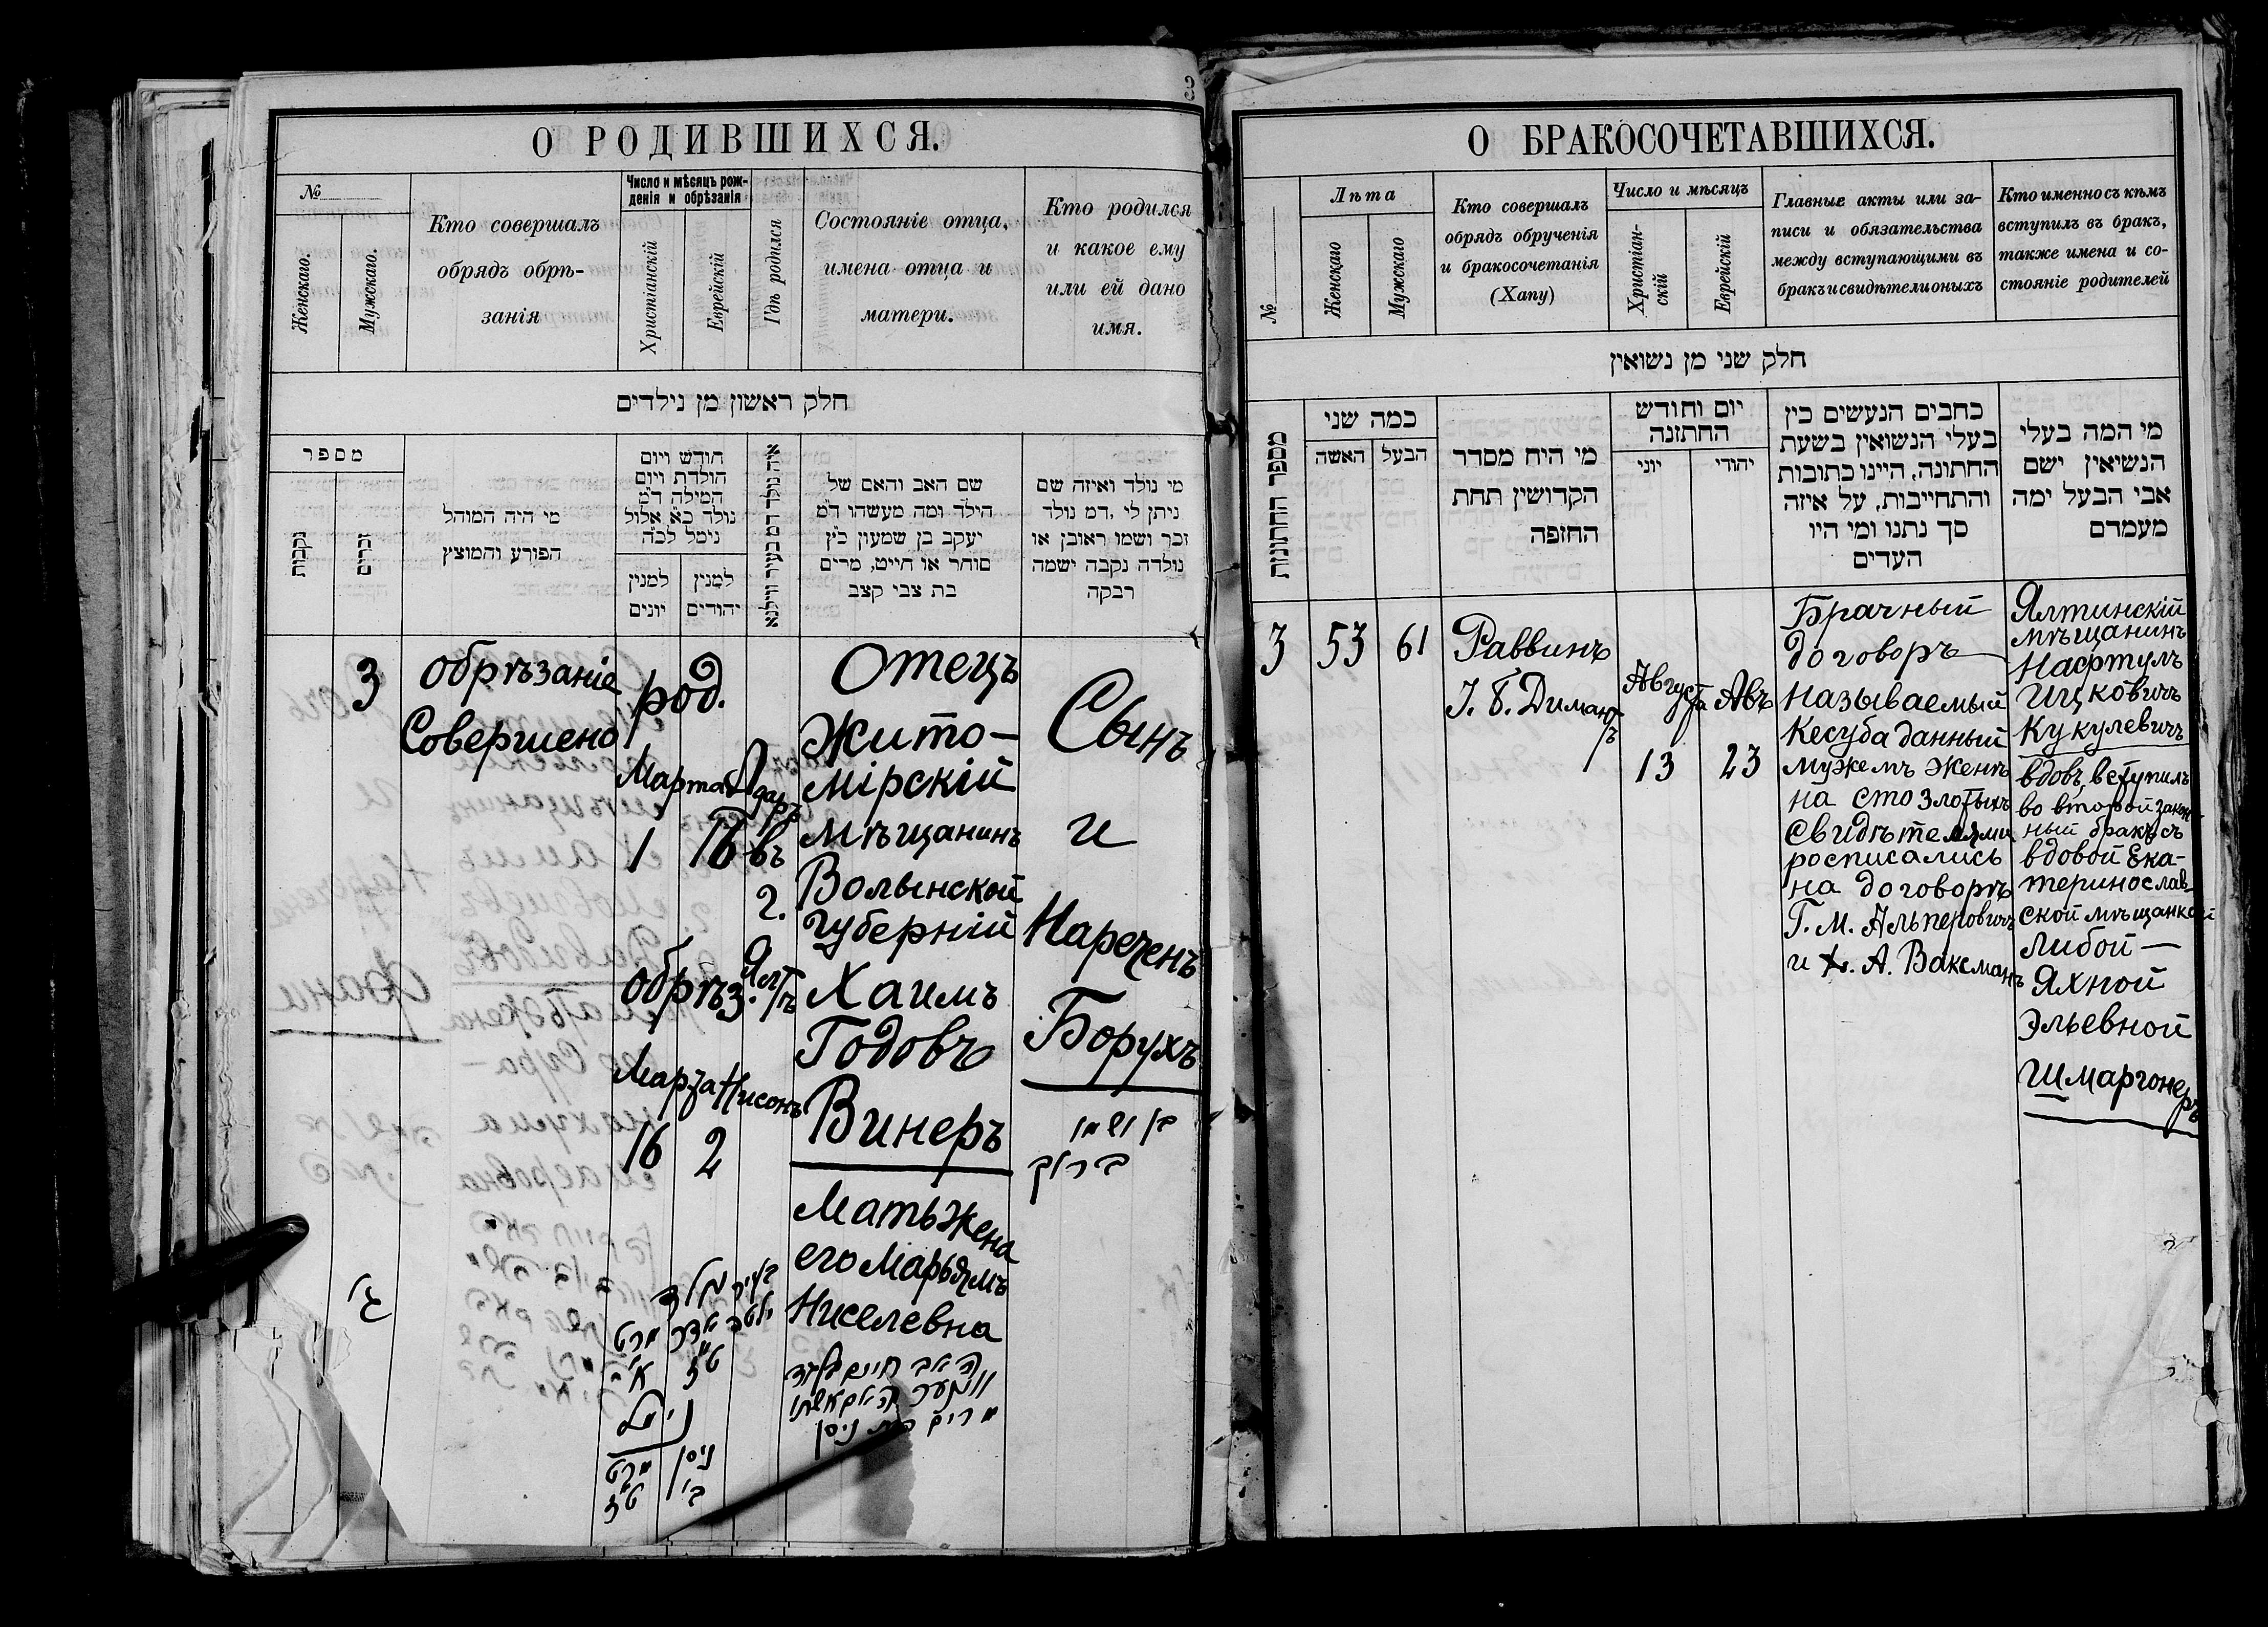 3
О РОДИВШИХСЯ.
№
Женскаго.
Мужскаго.
Кто совершалъ
обрядъ обрѣ-
занія
Число и мѣсяцъ рож-
денія и обрѣзанія
Христіанскій
Еврейскій
Гдѣ родился
Состояніе отца,
имена отца и
матери.
Кто родился
и какое ему
или ей дано
имя.
חלק ראשון מן נילדים
מספר
נקבות
זכרים
מי היה המוהל
הפורע והמוצץ
חודש ויום
הולדת ויום
המילה ד״מ
נולד כ״א אלול
נימל לכ״ה
למנין
יונים
למנין
יהודים
איה נולד דמ בעיר ווילנא
שם האב והאם של
הילד ומה מעשהו ד״מ
יעקב בן שמעון כ״ץ
סוחר או חייט, מרים
בת צבי קצב
מי נולד ואיזה שם
ניתן לי, דמ נולד
זכר ושמו ראובן או
נולדה נקבה ישמה
רבקה
3
обрѣзаніе
Совершено
род.
Марта Адаръ
1 16
въ
г.
Ялтѣ
обрѣз.
Марта Нисонъ
16 2
Отецъ
Жито-
мірскій
мѣщанинъ
Волынской
губерній
Хаимъ
Годовъ
Винеръ
Мать жена
его Марьямъ
Ниселевна
Сынъ
и
Нареченъ
Борухъ
בן ושמו
ברוך
ג׳
בעיר נולד
ילטה אדר מרט
ט״ז א׳
נימל
ניסן מרט
ב׳ ט״ז
האב חיים
ווינער האם אשתו
מרים בת ניסן
О БРАКОСОЧЕТАВШИХСЯ.
№
Лѣта
Женскаго
Мужскаго
Кто совершалъ
обрядъ обрученія
и бракосочетанія
(Хапу)
Число и мѣсяцъ
Христіан-
скій
Еврейскій
Главные акты или за-
писи и обязательства
между вступающими въ
бракъ и свидѣтели оныхъ
Кто именно съ кѣмъ
вступилъ въ бракъ,
также имена и со-
стояніе родителей
חלק שני מן נשואין
מספר החתונות
כמה שני
האשה
הבעל
מי היח מסדר
הקדושין תחת
החזפה
יום וחודש
החתזנה
יוני
יהודי
כחבים הנעשים כין
בעלי הנשואין בשעת
החתונה, היינו כתובות
והתחייבות, על איזה
סך נתנו ומי היו
העדים
מי המה בעלי
הנשיאין ישם
אבי הבעל ימה
מעמדם
3
53
61
Раввинъ
І. Б. Димантъ
Августа Авъ
13 23
Брачный
договоръ
называемый
Кесуба данный
мужемъ женѣ
на сто злотыхъ
свидѣтелями
росписались
на договорѣ
Г. М. Альперовичъ
и А. Ваксманъ
Ялтинскій
мѣщанинъ
Нафтулъ
Ицковичъ
Кукулевичъ
вдовъ, вступилъ
во второй закон-
ный бракъ съ
вдовой Ека-
теринослав-
ской мѣщанкой
Либой-
Яхной
Эльевной
Шмаргонеръ